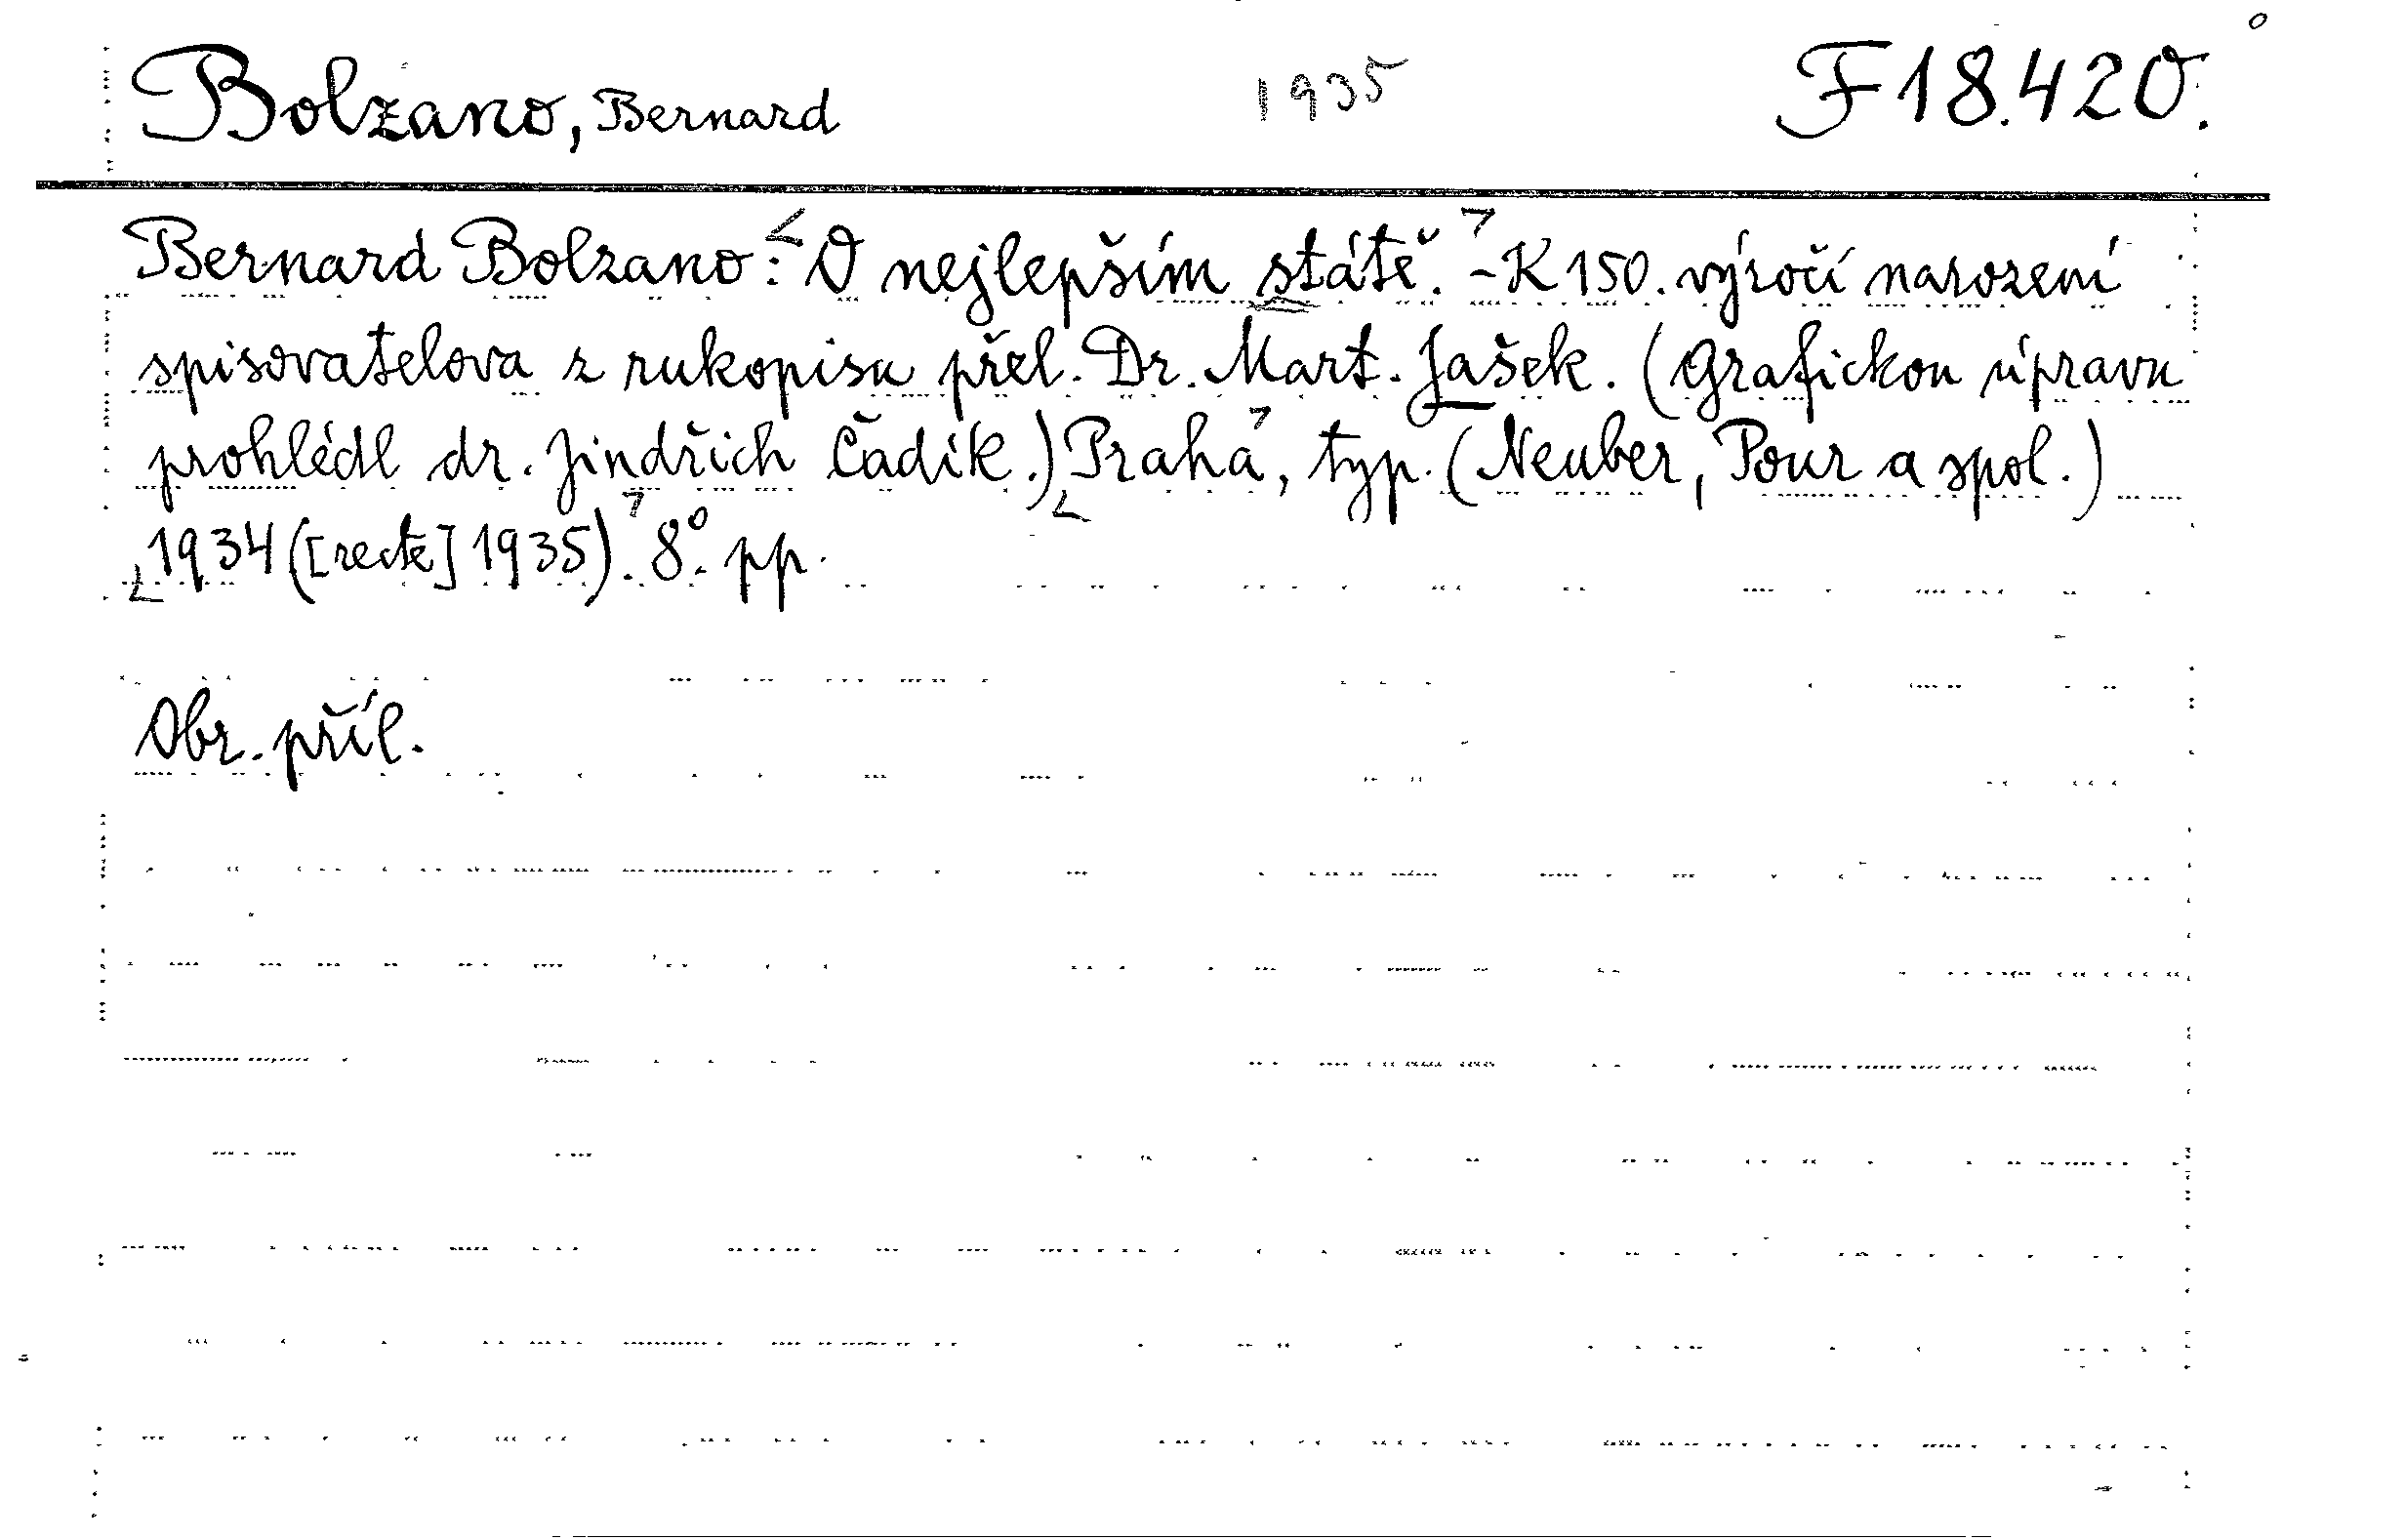 Bolzano, Bernard 1935 F 18.420.
Bernard Bolzano: O nejlepším státě. - K 150. výročí narození
spisovatelova z rukopisu přel. Dr. Mart. Jašek. (Grafickou úpravu
prohlédl dr. Jindřich Čadík.) Praha, typ. (Neuber, Pour a spol.)
1934 ([recte] 1935). 8°. pp.
Obr. příl.